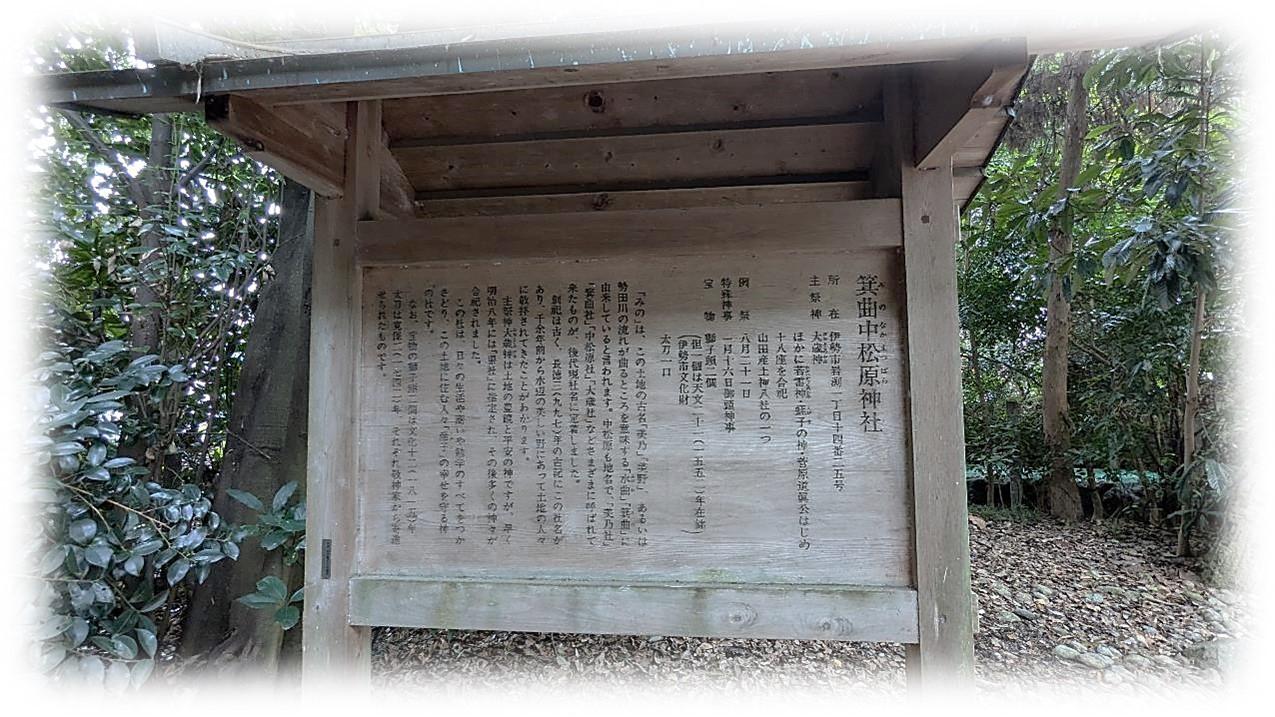 みのなかまつばら
箕曲中松原神社
所在 伊勢市岩渕一丁目十四番二五号
主祭神 大歳神
ほかに若雷神・蛭子の神・菅原道眞公はじめ
十八座を合祀
山田産土神八社の一つ
例祭 八月二十一日
特殊神事 一月十六日御頭神事
宝物 獅子頭二個
(但一個は天文二十一(一五五二)年在銘)
(伊勢市文化財)
太刀一口
「みの」は、この土地の古名「美乃」「美野」、あるいは
勢田川の流れが曲るところを意味する「水曲」「箕曲」に
由来していると言われます。中松原も地名で、「美乃社」
「箕曲社」「中松原社」「大歳社」などさまざまに呼ばれて
来たものが、後代現社名に定着しました。
創祀は古く、長徳三(九九七)年の古記にこの社名が
あり、千余年前から水辺の美しい野にあって土地の人々
に敬拝されてきたことがわかります。
主祭神大歳神は土地の豊饒と平安の神ですが、早く
明治八年には「郷社」に指定され、その後多くの神々が
合祀されました。
この社は、日々の生活や商いや勉学のすべてをつか
さどり、この土地に住む人々(産子)の幸せを守る神
の社です。
なお、宝物の獅子頭二個は文化十二(一八一五)年
太刀は寛保二(一七四二)年、それぞれ敬神家から寄進
せられたものです。